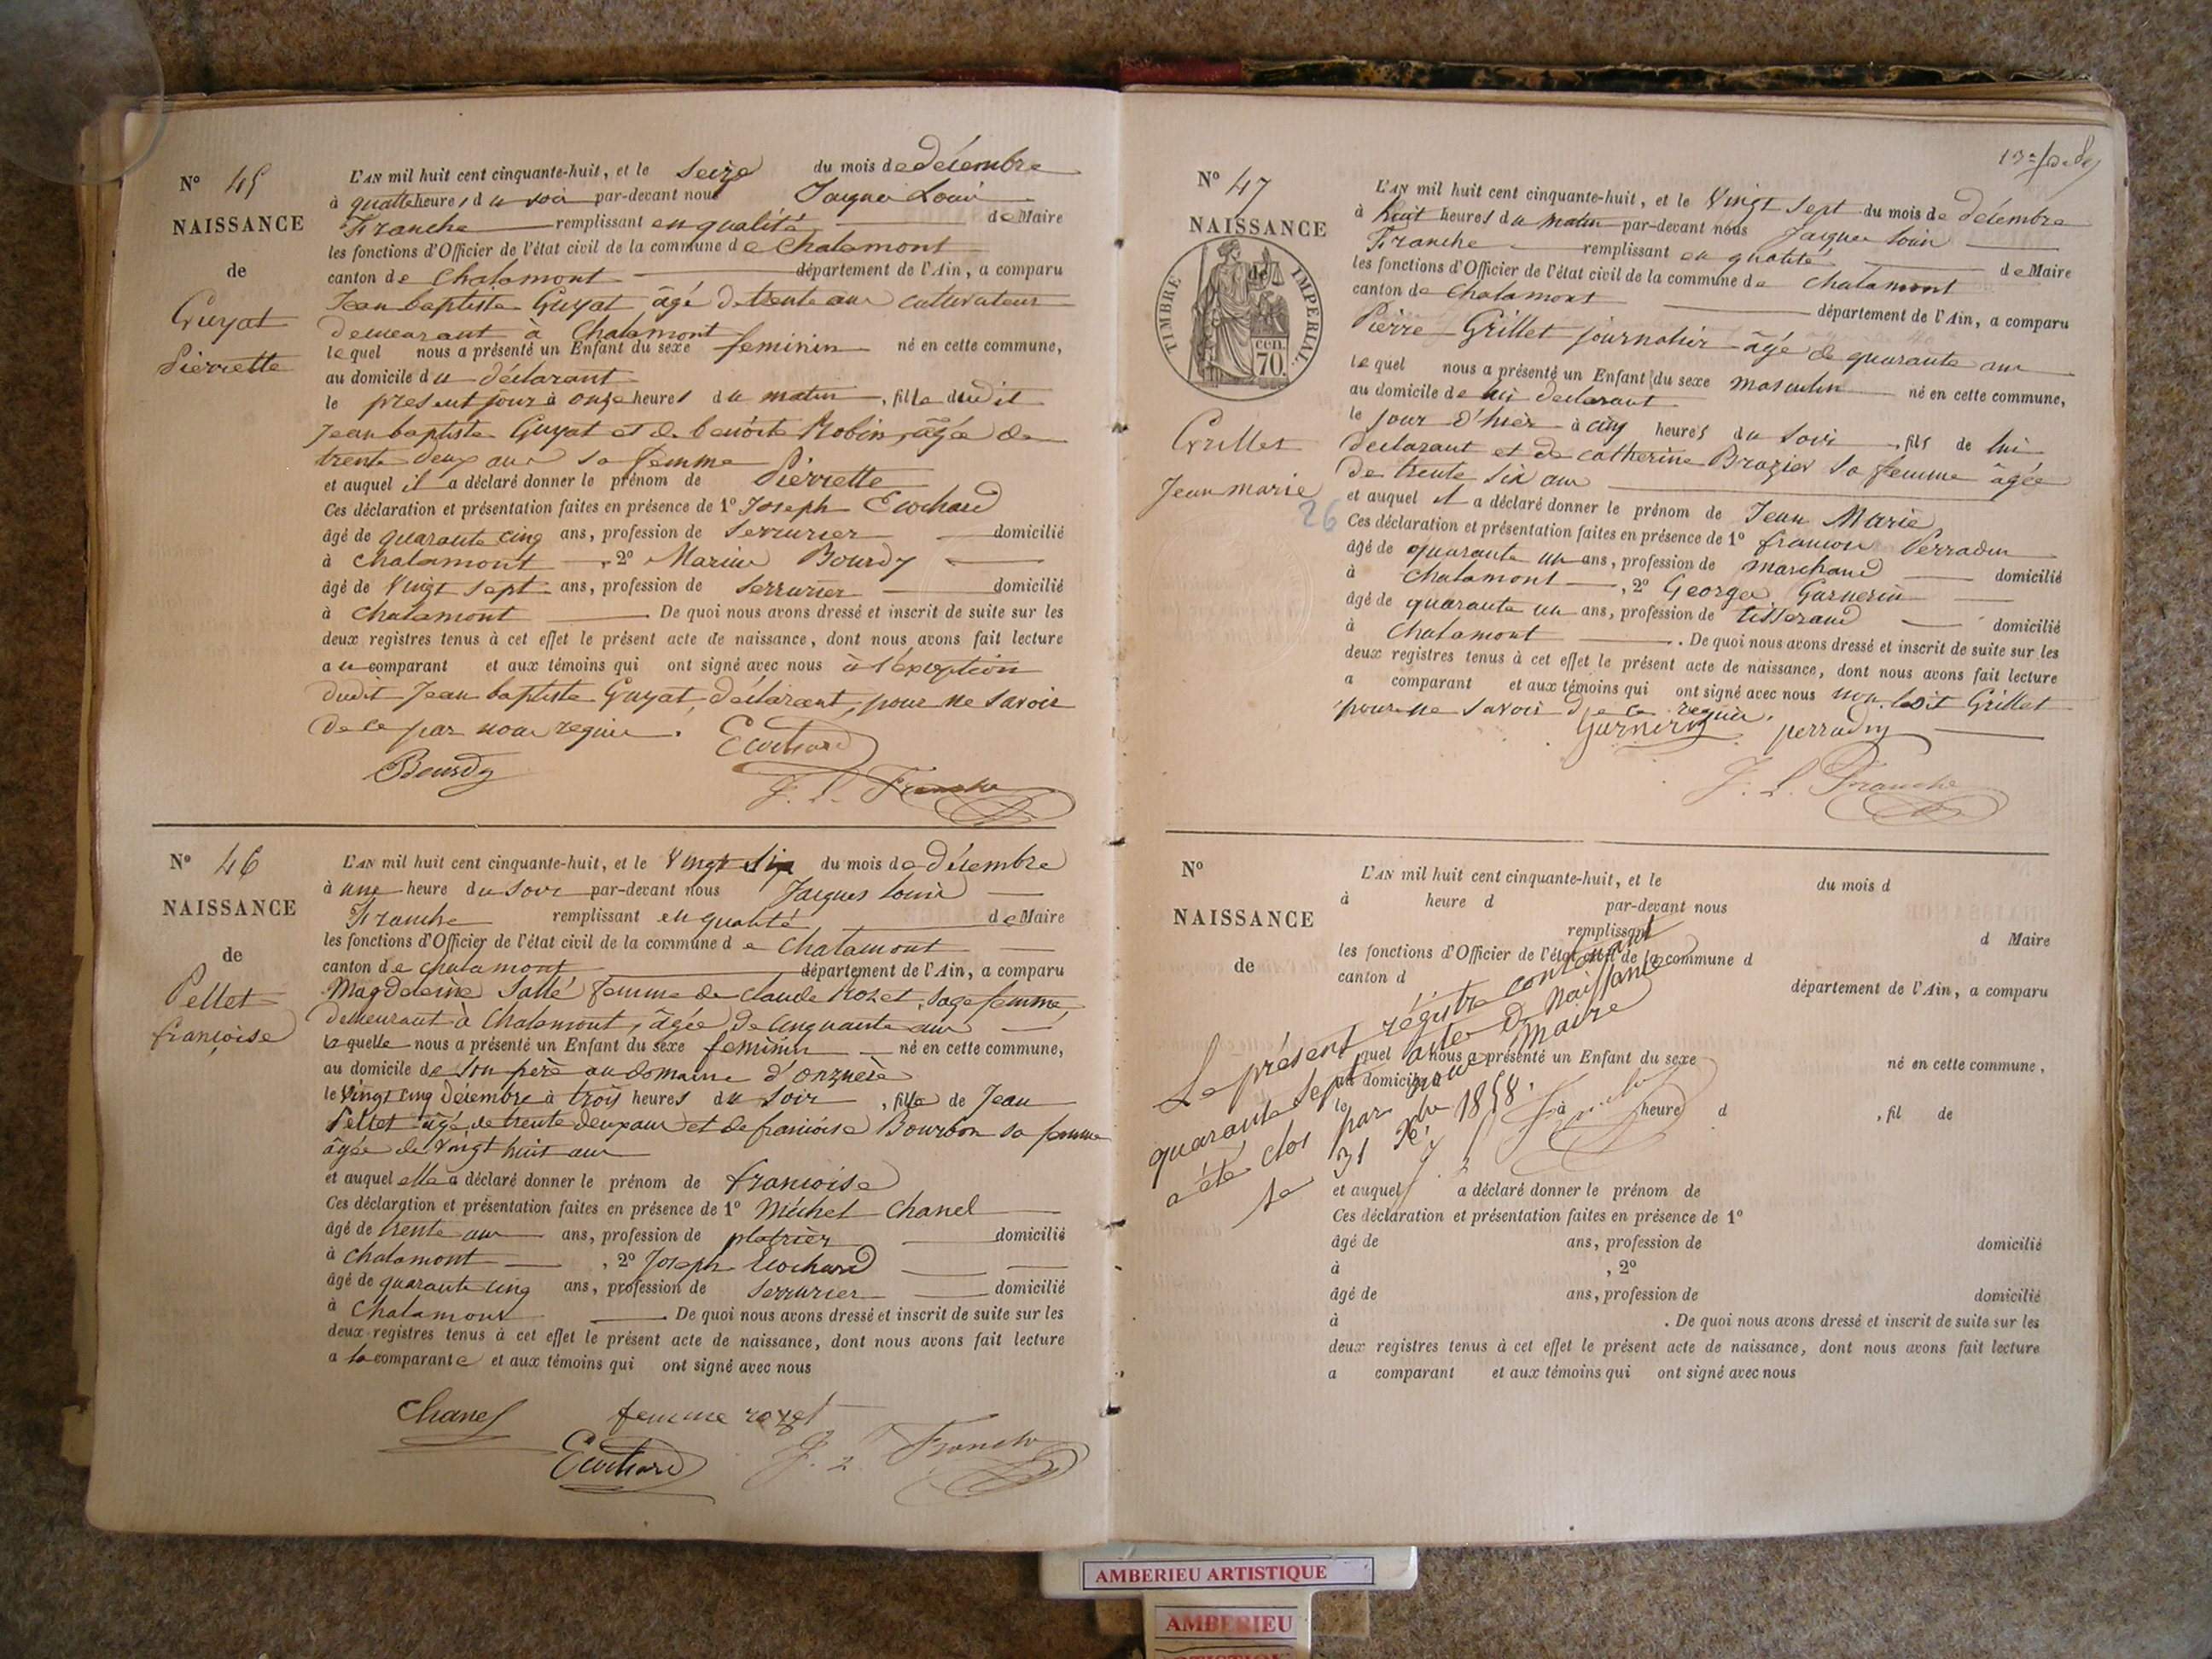 N° 45
NAISSANCE
de
Guyat
Pierrette
L'AN mil huit cent cinquante-huit, et le Seize du mois de décembre
à quatre heures du soir par-devant nous Jacques Louis
Franche remplissant en qualité de Maire
les fonctions d'Officier de l'état civil de la commune de Chalamont
canton de Chalamont département de l'Ain, a comparu
Jean baptiste Guyat âgé de trente ans cultivateur
demeurant à Chalamont
lequel nous a présenté un Enfant du sexe feminin né en cette commune,
au domicile du déclarant
le présent jour à onze heures du matin, fille dudit
Jean baptiste Guyat et de benoîte Robin, âgée de
trente deux ans sa femme
et auquel il a déclaré donner le prénom de Pierrette
Ces déclaration et présentation faites en présence de 1° Joseph Ecochard
âgé de quarante cinq ans, profession de Serrurier domicilié
à Chalamont, 2° Marius Bourdy
âgé de Vingt sept ans, profession de Serrurier domicilié
à Chalamont. De quoi nous avons dressé et inscrit de suite sur les
deux registres tenus à cet effet le présent acte de naissance, dont nous avons fait lecture
au comparant et aux témoins qui ont signé avec nous à l'exception
dudit Jean baptiste Guyat, déclarant, pour ne savoir
de ce par nous requis.
Ecochard
Bourdy
J. L. Franche
N° 46
NAISSANCE
de
Pellet
françoise
L'AN mil huit cent cinquante-huit, et le Vingt Six du mois de décembre
à une heure du Soir par-devant nous Jacques Louis
Franche remplissant en qualité de Maire
les fonctions d'Officier de l'état civil de la commune de Chalamont
canton de Chalamont département de l'Ain, a comparu
Magdeleine Sallé femme de Claude Rozet, Sage femme,
demeurant à Chalamont, âgée de Cinquante ans
laquelle nous a présenté un Enfant du sexe feminin né en cette commune,
au domicile de Son père au domaine d'
le Vingt cinq décembre à trois heures du Soir, fille de Jean
Pellet âgé de trente deux ans et de françoise Bourbon sa femme
âgée de Vingt huit ans
et auquel elle a déclaré donner le prénom de françoise
Ces déclaration et présentation faites en présence de 1° Michel Chanel
âgé de trente ans ans, profession de platrier domicilié
à Chalamont, 2° Joseph Ecochard
âgé de quarante cinq ans, profession de Serrurier domicilié
à Chalamont. De quoi nous avons dressé et inscrit de suite sur les
deux registres tenus à cet effet le présent acte de naissance, dont nous avons fait lecture
a la comparante et aux témoins qui ont signé avec nous
Chanel femme rozet
Ecochard J. L. Franche
N° 47
NAISSANCE
de
TIMBRE IMPERIAL.
70 cen.
Grillet
Jean marie
26
L'AN mil huit cent cinquante-huit, et le Vingt Sept du mois de décembre
à huit heures du matin par-devant nous Jacques Louis
Franche remplissant en qualité de Maire
les fonctions d'Officier de l'état civil de la commune de Chalamont
canton de Chalamont département de l'Ain, a comparu
Pierre Grillet journalier âgé de quarante ans
lequel nous a présenté un Enfant du sexe masculin né en cette commune,
au domicile de lui déclarant
le jour d'hier à cinq heures du Soir, fils de lui
déclarant et de Catherine Brazier Sa femme âgée
de trente Six ans
et auquel il a déclaré donner le prénom de Jean Marie
Ces déclaration et présentation faites en présence de 1° françois
âgé de quarante un ans, profession de marchand domicilié
à Chalamont, 2° George Garnerin
âgé de quarante un ans, profession de tisserand domicilié
à Chalamont. De quoi nous avons dressé et inscrit de suite sur les
deux registres tenus à cet effet le présent acte de naissance, dont nous avons fait lecture
a comparant et aux témoins qui ont signé avec nous non ledit Grillet
pour ne Savoir de ce requis.
J. L. Franche
N°
NAISSANCE
de
L'AN mil huit cent cinquante-huit, et le du mois d
à heure d par-devant nous
remplissant d Maire
les fonctions d'Officier de l'état civil de la commune d
canton d département de l'Ain, a comparu
quel nous a présenté un Enfant du sexe né en cette commune,
au domicile d
le à heure d, fil de
Le présent régistre contenant
quarante Sept actes de Naissance
a été clos par nous Maire
le 31 Xbre 1858.
et auquel a déclaré donner le prénom de
Ces déclaration et présentation faites en présence de 1°
âgé de ans, profession de domicilié
à , 2°
âgé de ans, profession de domicilié
à . De quoi nous avons dressé et inscrit de suite sur les
deux registres tenus à cet effet le présent acte de naissance, dont nous avons fait lecture
a comparant et aux témoins qui ont signé avec nous
AMBERIEU ARTISTIQUE
AMBERIEU